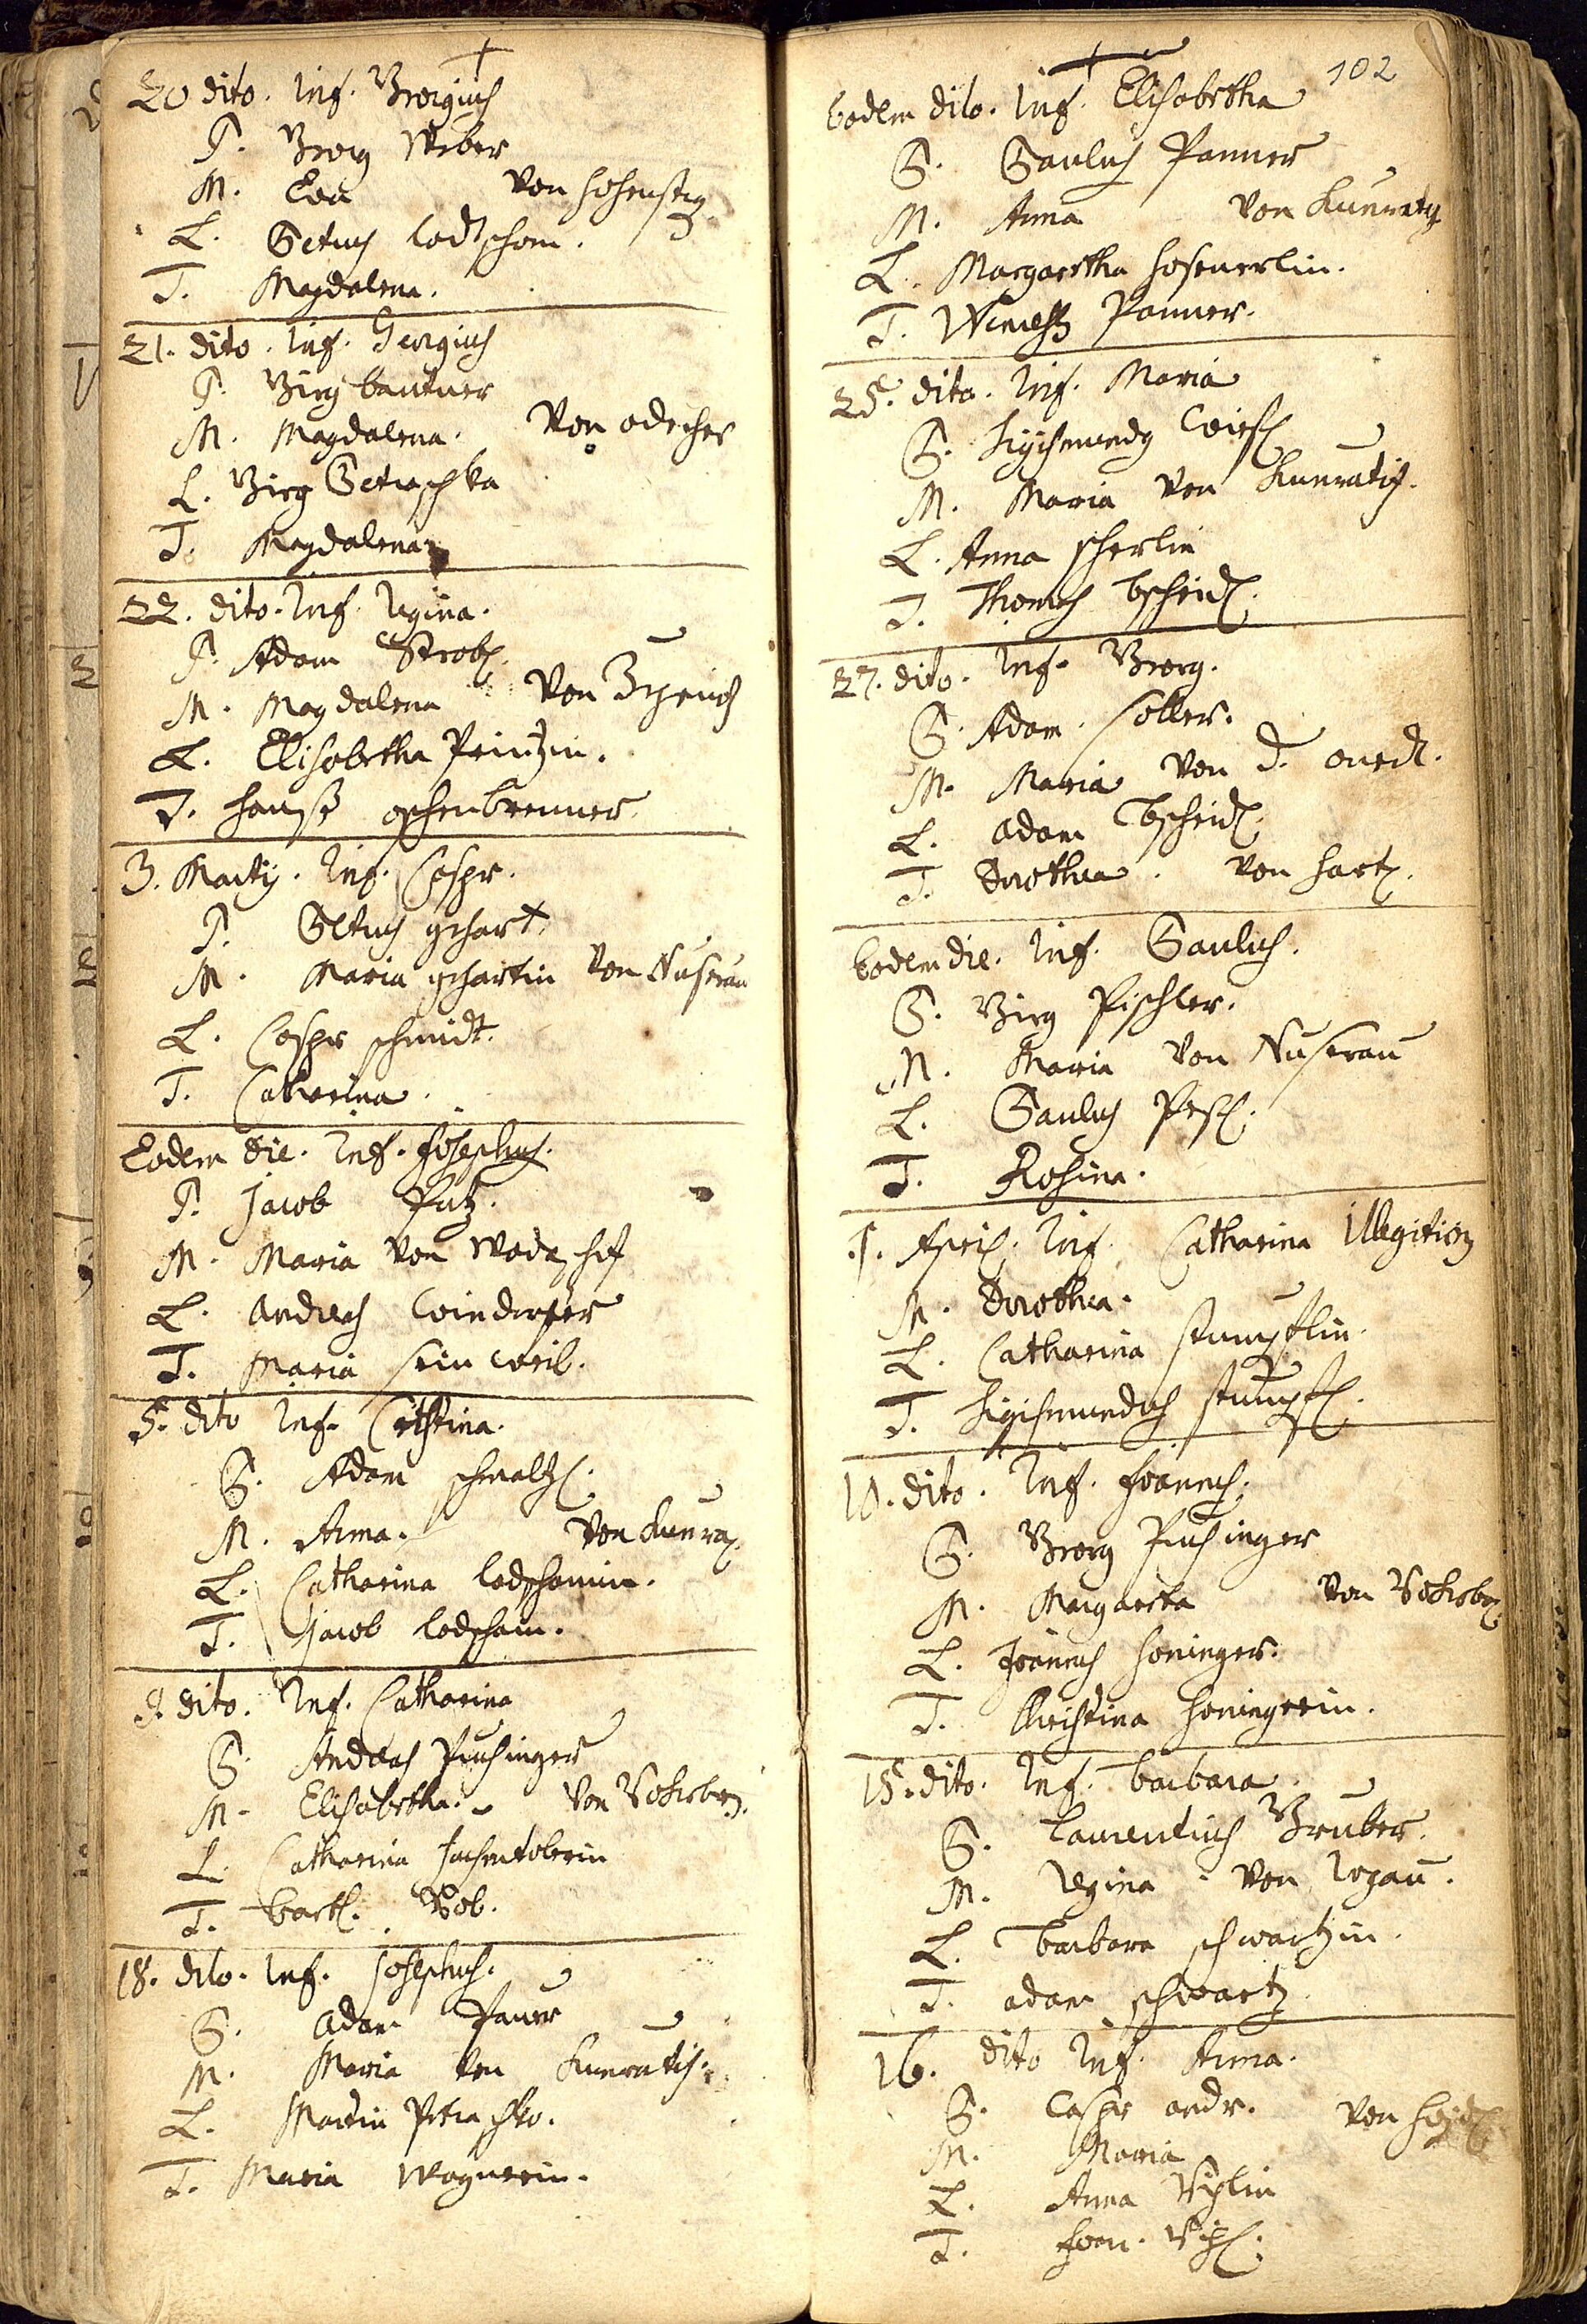 20 dito. Inf. Georgius
P. Georg Weber
M. Eva von Hohensteg
L. Petrus lodscham.
T. Magdalena.
21. dito. Inf. Georgius
P. Girg bautner
M. Magdalena. Von
L. Girg Petraschka
T. Magdalena
22. dito. Inf. Regina.
P. Adam Strobl
M. Magdalena Von
L. Elisabetha Printzin.
T. Hanß oschenbrenner
3. Martij. Inf. Caspr.
P. Petrus gehart
M. Maria gehartin Von Nuserau
L. Caspr schmidt.
T. Catharina.
Eodem die. Inf. Josephus.
P. Jacob Putz.
M. Maria Von
L. Andreas Windorfer
T. Maria sein weib.
5. dito Inf. Cristina.
P. Adam schmaltzl.
M. Anna. Von Kunra.
L. Catharina lodschamin.
T. Jacob lodscham.
9. dito. Inf. Catharina
P. Andreas Puchinger
M. Elisabetha.
L. Catharina
T. Bartl.
18. dito. Inf. Josephus.
P. Adam Paur
M. Maria Von Kunratis.
L. Martin Petraschko.
T. Maria Wagnerin.
102
Eodem dito. Inf. Elisabetha
P. Paulus Panner
M. Anna Von Kunratz
L. Margaretha
T. Panner.
25. dito. Inf. Maria
P. Sigismundg
M. Maria Von Kunratis.
L. Anna scherlin
T. Thomas bscheidl.
27. dito. Inf. Georg.
P. Adam Soller.
M. Maria Von d.
L. Adam bscheidl.
T. Dorothea. Von Hartl.
Eodem die. Inf. Paulus.
P. Girg Pischler.
M. Maria Von Nuserau
L. Paulus Pesl.
T. Rosina.
1. April. Inf. Catharina Illegitim
M. Dorothea.
L. Catharina stumpflin.
T. Sigismundus stumpfl.
10. dito. Inf. Joannes.
P. Georg Puchinger
M. Margareta
L. Joannes Honinger.
T. Christina Honingerin.
15. dito. Inf. Barbara.
P. Laurentius Gruber.
M. Regina Von Rogau.
L. Barbara schwartzin.
T. adam schwartz.
16. dito Inf. Anna.
P. Caspr andr. Von
M. Maria
L. Anna
T. Joan.